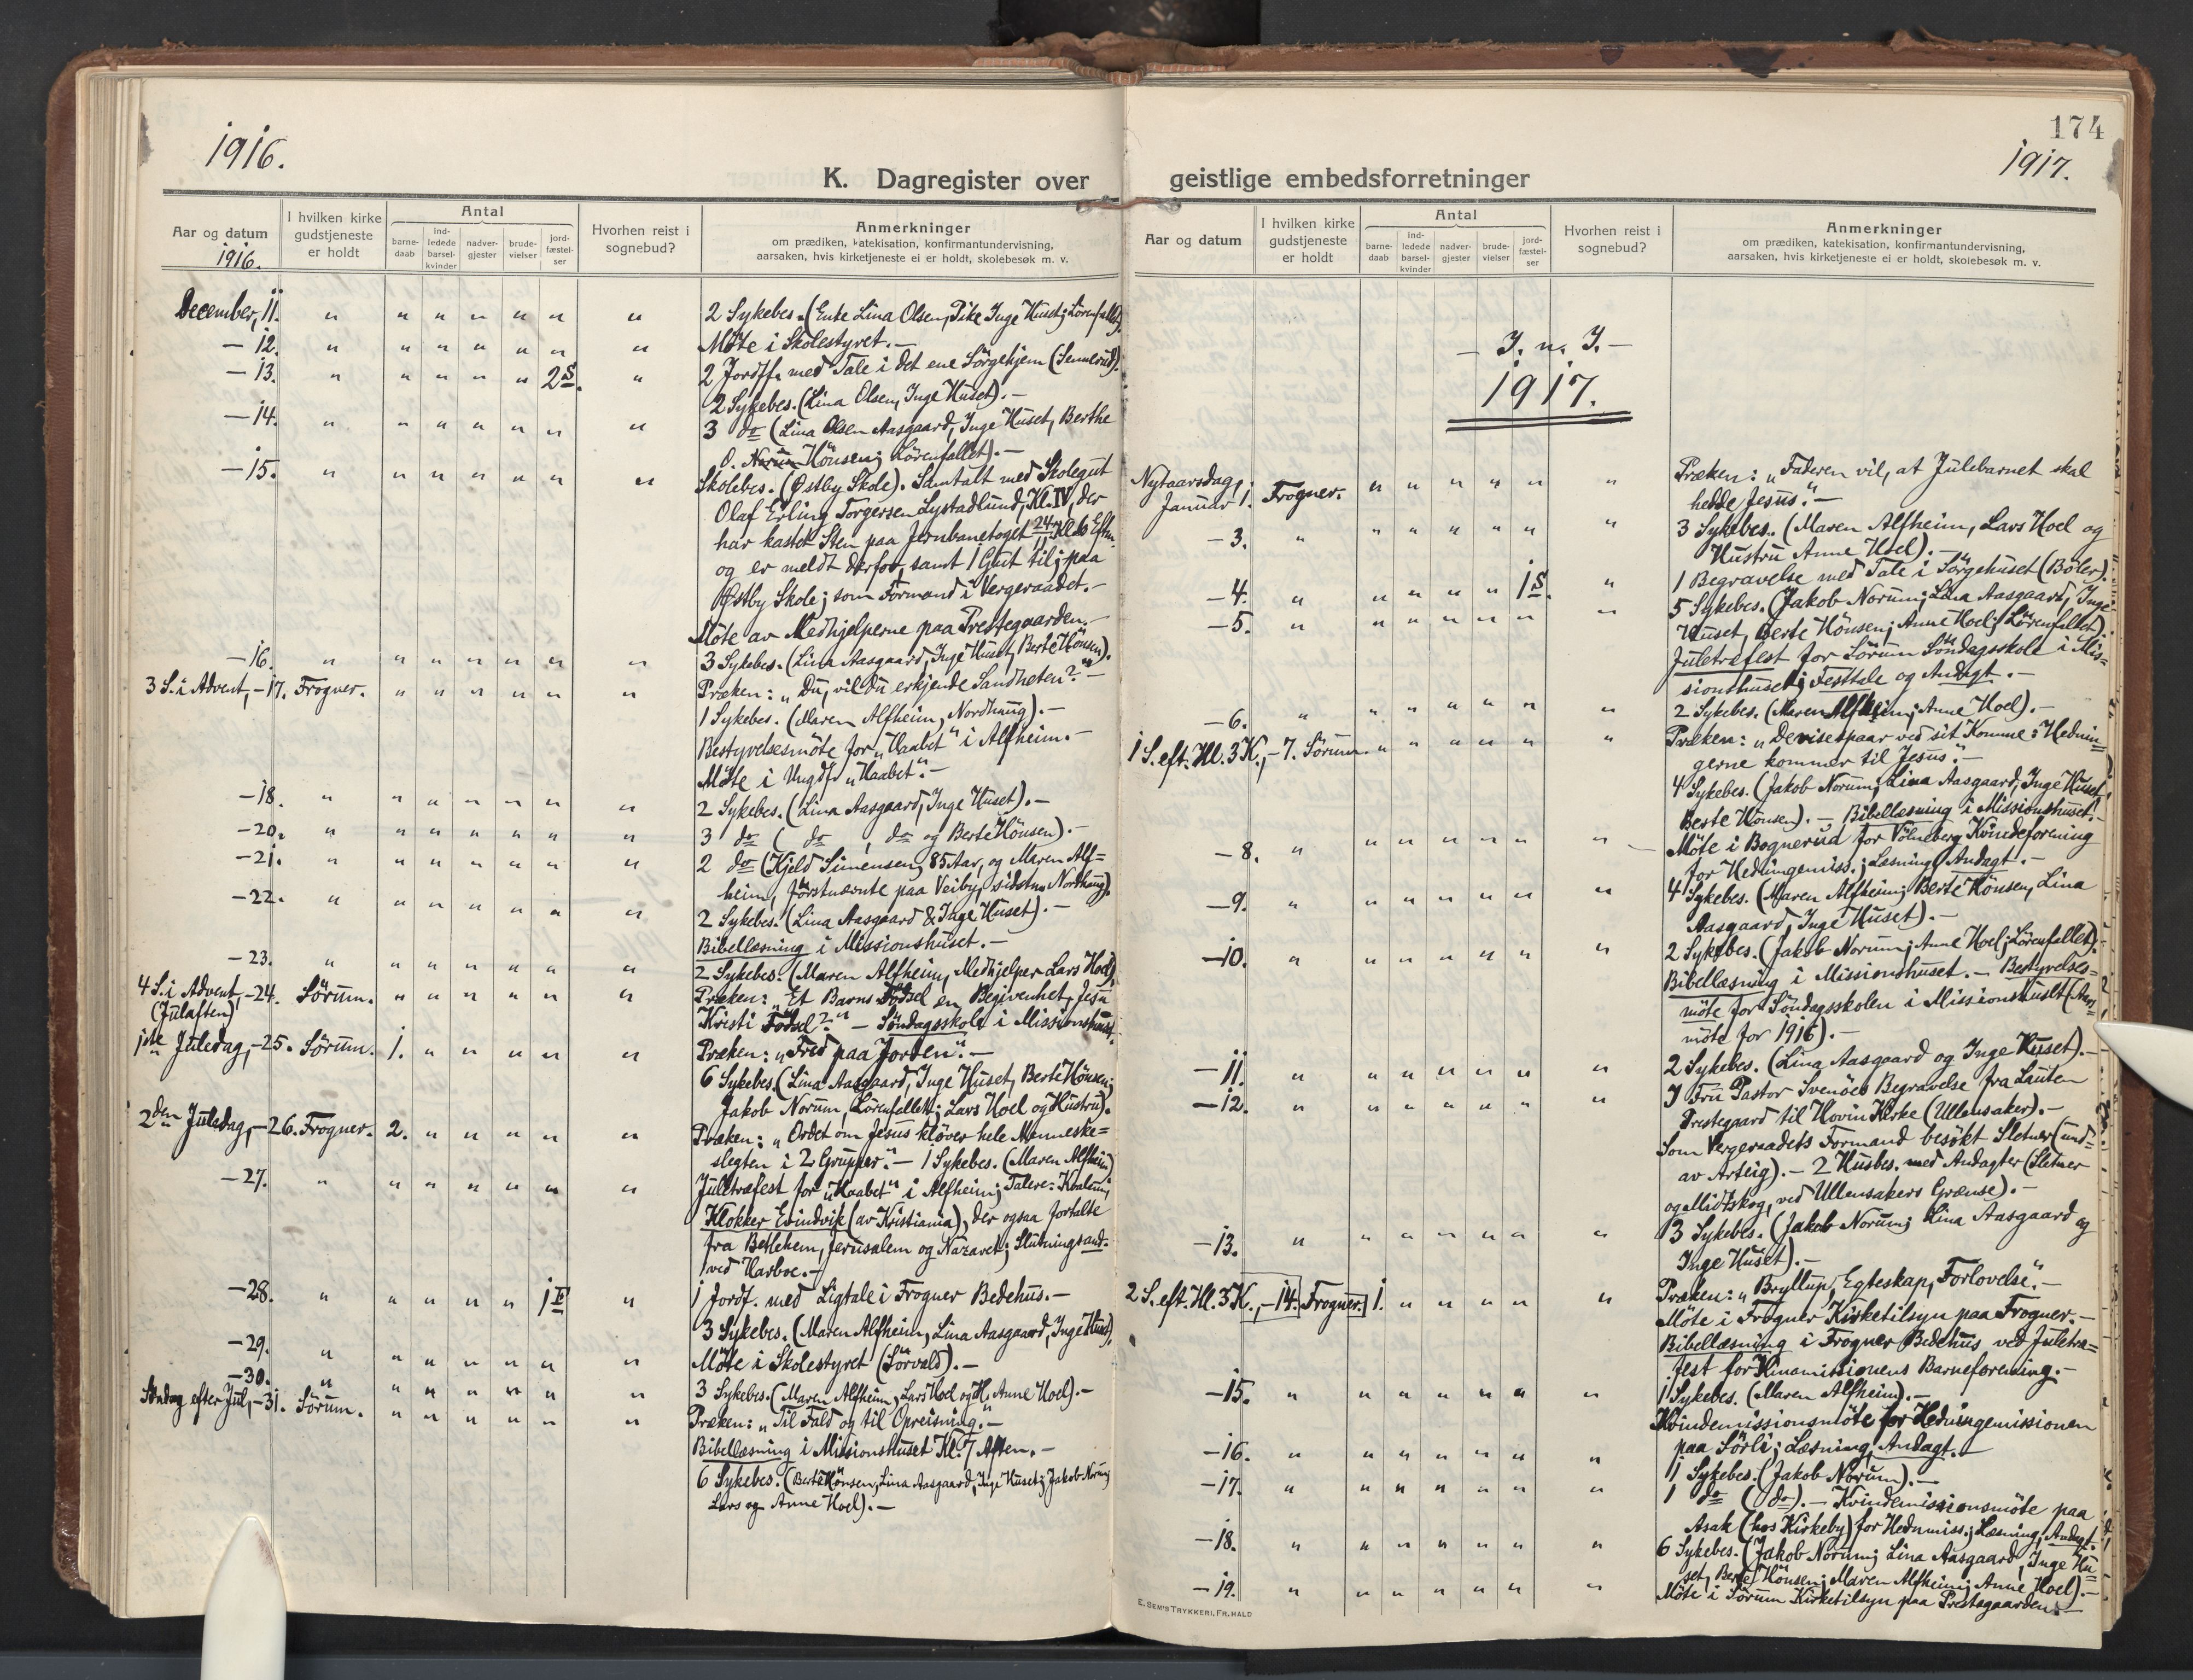 1916.
K. Dagregister over
Aar og datum
1916.
I hvilken kirke
gudstjeneste
er holdt
Antal
barne-
daab
ind-
ledede
barsel-
kvinder
nadver-
gjester
brude-
vielser
jord-
fæstel-
ser
Hvorhen reist i
sognebud?
Anmerkninger
om prædiken, katekisation, konfirmantundervisning,
aarsaken, hvis kirketjeneste ei er holdt, skolebesøk m. v.
December, 11. " " " " " " " 2 Sykebes. (Enke Lina Olsen, Pike Inge Huset; Lörenfallet).
— 12. " " " " " " " Möte i Skolestyret. —
— 13. " " " " " 2 S. " 2 Jordff. med Tale i det ene Sörgehjem (Sennerud).
2 Sykebes. (Lina Olsen, Inge Huset). —
— 14. " " " " " " " 3 do (Lina Olsen Aasgaard, Inge Huset, Berthe
O. Norum Hönsen; Lörenfallet). —
— 15. " " " " " " " Skolebes. (Østby Skole). Samtalt med Skolegut
Olaf Erling Torgersen Lystadlund, Kl. IV, der
har kastet Sten paa Jernbanetoget 24/11 Kl. 6 Eftm.
og er meldt derfor, samt 1 Gut til; paa
Østby Skole; som Formand i Vergeraadet. —
Möte av Medhjelperne paa Prestegaarden. —
— 16. " " " " " " " 3 Sykebes. (Lina Aasgaard, Inge Huset, Berte Hönsen).
3 S. i Advent, — 17. Frogner. " " " " " " Præken: „Du, vil du erkjende Sandheten?" —
1 Sykebes. (Maren Alfheim, Nordhaug). —
Bestyrelsesmöte for „Haabet" i Alfheim. —
Möte i Ungdf. „Haabet". —
— 18. " " " " " " " 2 Sykebes. (Lina Aasgaard, Inge Huset). —
— 20. " " " " " " " 3 do ( do , do og Berte Hönsen). —
— 21. " " " " " " " 2 do (Kjeld Simensen, 85 Aar, og Maren Alf=
heim, förstnævnte paa Veiby, sidstn. Nordhaug).
— 22. " " " " " " " 2 Sykebes. (Lina Aasgaard & Inge Huset). —
Bibellæsning i Missionshuset. —
— 23. " " " " " " " 2 Sykebes. (Maren Alfheim, Medhjelper Lars Hoel).
4 S. i Advent, — 24. Sörum. " " " " " " Præken: „Et Barns Födsel en Begivenhet, Jesu
(Julaften) Kristi Födsel?" — Söndagsskole i Missionshuset.
1ste Juledag, — 25. Sörum. 1. " " " " " Præken: „Fred paa Jorden". —
6 Sykebes. (Lina Aasgaard, Inge Huset, Berte Hönsen;
Jakob Norum, Lörenfallet; Lars Hoel og Hustru).
2den Juledag, — 26. Frogner. 2. " " " " " Præken: „Ordet om Jesus klöver hele Menneske=
slegten i 2 Grupper". — 1 Sykebes. (Maren Alfheim)
— 27. " " " " " " " Juletræfest for „Haabet" i Alfheim; Talere: Kvalem;
Klokker Evindvik (av Kristiania), der ogsaa fortalte
fra Betlehem, Jerusalem og Nazaret; Slutningsand.
ved Harboe. —
— 28. " " " " " 1 F " 1 Jordf. med Ligtale i Frogner Bedehus. —
3 Sykebes. (Maren Alfheim, Lina Aasgaard, Inge Huset).
— 29. " " " " " " " Möte i Skolestyret (Sörvald). —
— 30. " " " " " " " 3 Sykebes. (Maren Alfheim, Lars Hoel og H. Anne Hoel). —
Söndag efter Jul, — 31. Sörum. " " " " " " Præken: „Til Fald og til Opreisning." —
Bibellæsning i Missionshuset Kl. 7 Aften. —
6 Sykebes. (Berte Hönsen, Lina Aasgaard, Inge Huset; Jakob Norum;
Lars og Anne Hoel). —
174
1917.
geistlige embedsforretninger
Aar og datum
I hvilken kirke
gudstjeneste
er holdt
Antal
barne-
daab
ind-
ledede
barsel-
kvinder
nadver-
gjester
brude-
vielser
jord-
fæstel-
ser
Hvorhen reist i
sognebud?
Anmerkninger
om prædiken, katekisation, konfirmantundervisning,
aarsaken, hvis kirketjeneste ei er holdt, skolebesøk m. v.
— J. n. J. —
1917.
Nytaarsdag, Præken: „Faderen vil, at Julebarnet skal
Januar 1. Frogner. " " " " " " hedde Jesus". —
— 3. " " " " " " " 3 Sykebes. (Maren Alfheim, Lars Hoel og
Hustru Anne Hoel). —
— 4. " " " " " 1 S. " 1 Begravelse med Tale i Sörgehuset (Böler).
— 5. " " " " " " " 5 Sykebes. (Jakob Norum; Lina Aasgaard, Inge
Huset, Berte Hönsen; Anne Hoel; Lörenfallet).
Juletræfest for Sörum Söndagsskole i Mis=
sionshuset; Festtale og Andagt. —
— 6. " " " " " " " 2 Sykebes. (Maren Alfheim; Anne Hoel). —
1 S. eft. Hl. 3 K., — 7. Sörum. " " " " " " Præken: „De vise spaar ved sit Komme: Hednin=
gerne kommer til Jesus". —
4 Sykebes. (Jakob Norum; Lina Aasgaard, Inge Huset,
Berte Hönsen). — Bibellæsning i Missionshuset. —
— 8. " " " " " " " Möte i Bognerud for Völneberg Kvindeforening
for Hedningemiss.; Læsning, Andagt. —
— 9. " " " " " " " 4 Sykebes. (Maren Alfheim; Berte Hönsen, Lina
Aasgaard, Inge Huset). —
— 10. " " " " " " " 2 Sykebes. (Jakob Norum; Anne Hoel; Lörenfallet).
Bibellæsning i Missionshuset. — Bestyrelses=
möte for Söndagsskolen i Missionshuset
möte for 1916). —
— 11. " " " " " " " 2 Sykebes. (Lina Aasgaard og Inge Huset). —
— 12. " " " " " " " I Fru Pastor Svenöes Begravelse fra Lauten
Prestegaard til Hovin Kirke (Ullensaker). —
Som Vergeraadets Formand besökt Sletner (und=
av Arteig). — 2 Husbes. med Andagter (Sletner
og Midtskog, ved Ullensakers Grænse). —
— 13. " " " " " " " 3 Sykebes. (Jakob Norum; Lina Aasgaard og
Inge Huset). —
2 S. eft. Hl. 3 K., — 14. Frogner. 1. " " " " " Præken: „Bryllup, Egteskap, Forlovelse". —
Möte i Frogner Kirketilsyn paa Frogner. —
Bibellæsning i Frogner Bedehus ved Juletræ=
fest for Kinamissionens Barneforening. —
— 15. " " " " " " " 1 Sykebes. (Maren Alfheim). —
Kvindemissionsmöte for Hedningemissionen
paa Sörli; Læsning, Andagt. —
— 16. " " " " " " " 1 Sykebes. (Jakob Norum). —
— 17. " " " " " " " 1 do ( do ). — Kvindemissionsmöte paa
Asak (hos Kirkeby) for Hednmiss.; Læsning, Andagt. —
— 18. " " " " " " " 6 Sykebes. (Jakob Norum; Lina Aasgaard, Inge Hu=
set, Berte Hönsen; Maren Alfheim; Anne Hoel). —
— 19. " " " " " " " Möte i Sörum Kirketilsyn paa Prestegaarden. —
E. SEM'S TRYKKERI, FR.HALD